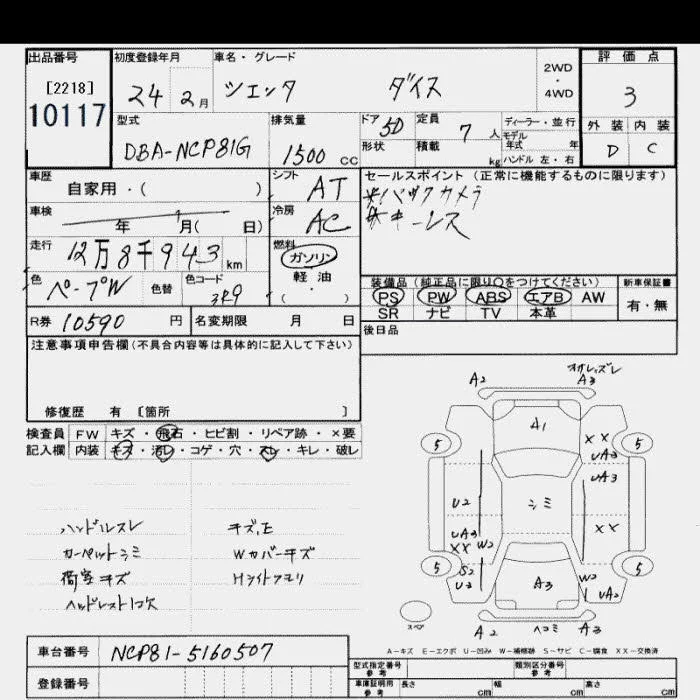 出品番号
[2218]
10117
初度登録年月
24 2月
車名・グレード
シエンタ ダイス
2WD
・
4WD
評価点
3
外装 内装
D C
型式
DBA-NCP81G
排気量
1500 CC
ドア 5D
形状
定員 7 人
積載 kg
ディーラー・並行
モデル
年式 年
ハンドル 左・右
車歴
自家用・( )
シフト
AT
セールスポイント(正常に機能するものに限ります)
バックカメラ
キーレス
車検
年 月( 日)
冷房
AC
走行
12万8千943 km
燃料
ガソリン
軽・油
( )
色
色替
色コード
3R9
装備品(純正品に限り○をつけてください)
PS PW ABS エアB AW
SR ナビ TV 本革
新車保証書
有・無
R券 10590 円
名変期限 月 日
後日品
注意事項申告欄(不具合内容等は具体的に記入して下さい)
修復歴 有 〔箇所 〕
検査員 FW キズ・飛石・ヒビ割・リペア跡・×要
記入欄 内装 キズ・汚レ・コゲ・穴・スレ・キレ・破レ
ハンドルスレ
カーペットシミ
荷室キズ
キズ.E
Wカバーキズ
A2 A3
A1
5 5
XX
UA3
UA3
U2
シミ
UA3
XX W2
XX
5 5
S2
U3
A3
W2
UA2
スペア
A2 ヘコミ A3
A-キズ E-エクボ U-凹み W-補修跡 S-サビ C-腐食 XX-交換済
車台番号 NCP81-5160507
登録番号
型式指定番号
参考
類別区分番号
参考
車庫証明用
参考
長さ cm 幅 cm 高さ cm